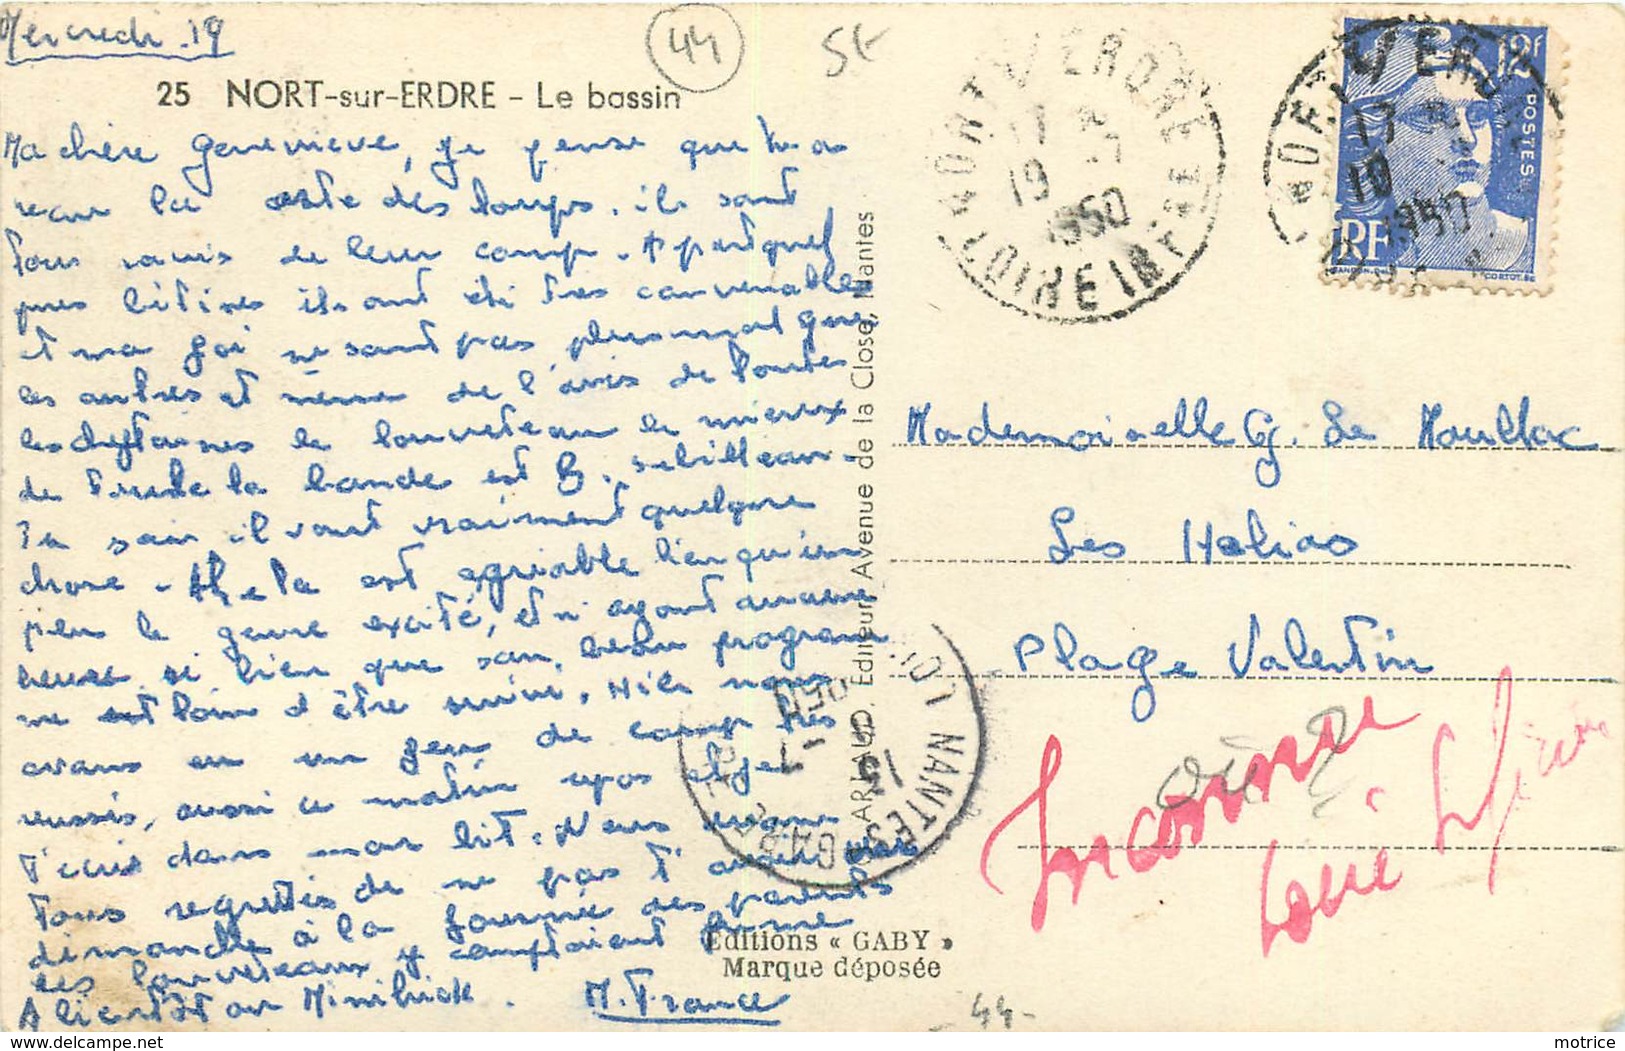 Mercredi 19
44
25 NORT-sur-ERDRE - Le bassin
Ma chère Geneviève, je pense que tu as
reçu la carte des loups. ils sont
tous ravis de leur camp. Apart quel
ques bêtises ils ont été très convenables
et ma foi ne sont pas plus mal que
les autres et même de l'avis de toutes
les cheftaines le louveteau le mieux
de toute la bande est
Tu sais il vaut vraiment quelque
chose - est agréable bien qu'un
peu le genre excité, et n'ayant aucune
heure si bien que son beau program
me est loin d'être suivi. Hier nous
avons eu un jeu de camp très
réussi, aussi ce matin repos et je
t'écris dans mon lit. Nous avons
tous regrettés de ne pas t'avoir vue
dimanche à la journée des parents
des louveteaux y comptaient ferme
A bientôt M. France
ARTAUD, Editeur, Avenue de la Close, Nantes
Editions « GABY »
Marque déposée
NORT S/ ERDRE
17 H
19 - 7
1950
LOIRE INFRE
12F
POSTES
RF
GANDON
CORTOT
NORT S/ ERDRE
17 H
19
1950
Mademoiselle G. Le Moullac
Les Helios
Plage Valentin
Inconnue
où ?
Loire Inférieure
NANTES GARE
LOIRE
1950
44-
motrice